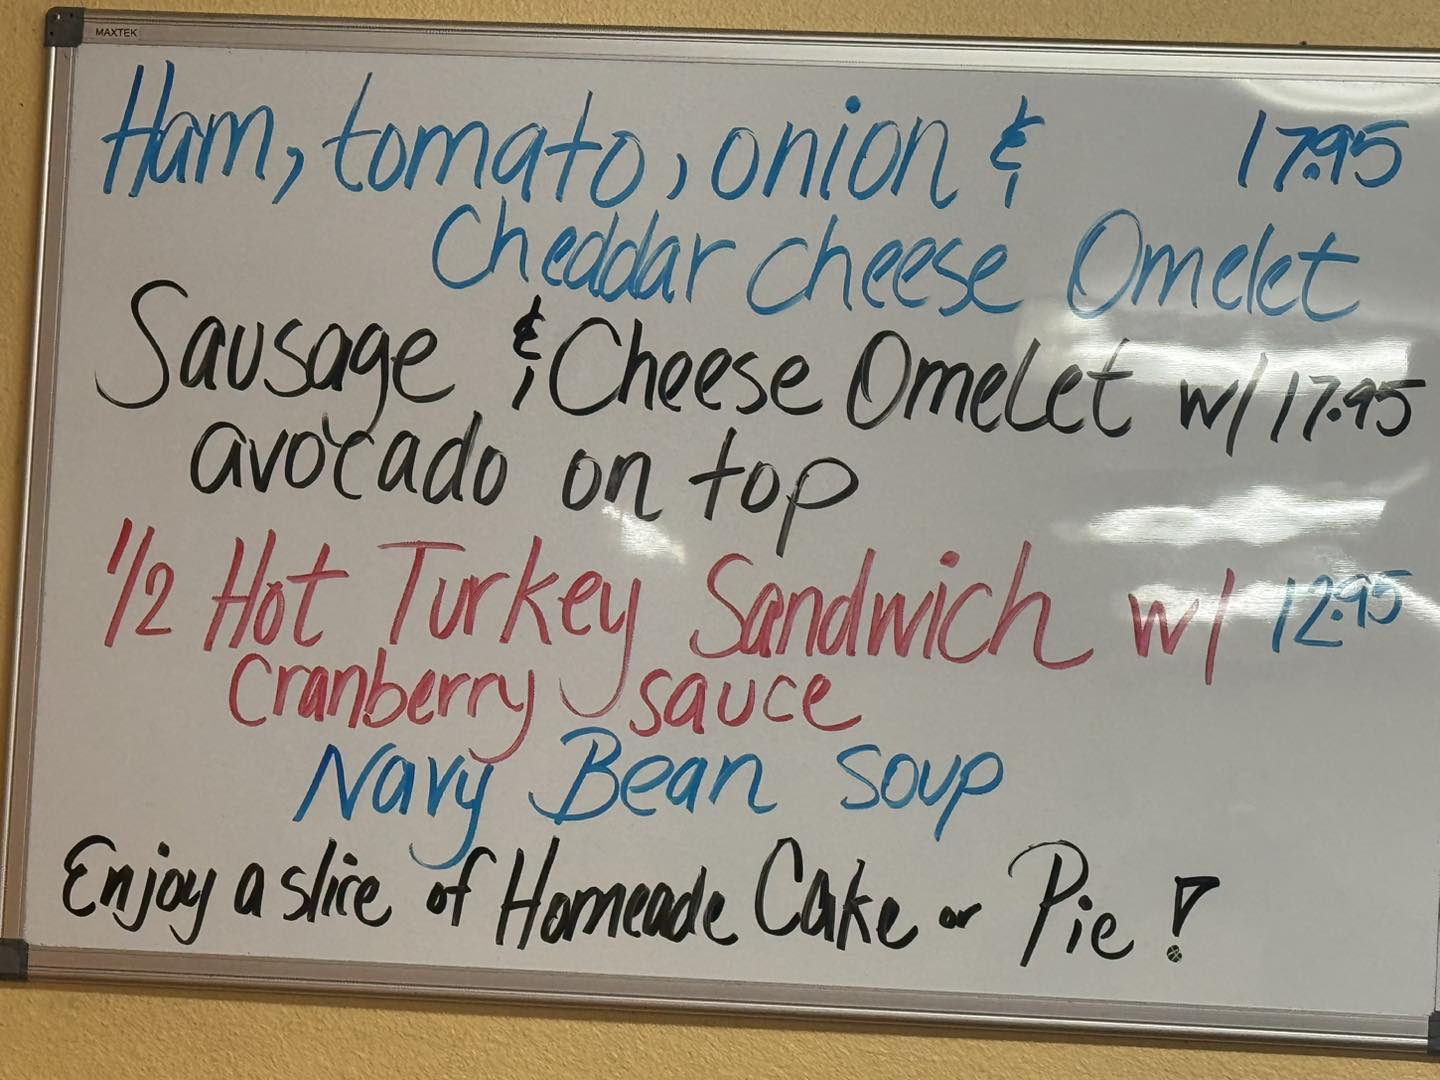 MAXTEK
Ham, tomato, onion & 17.95
Cheddar cheese Omelet
Sausage & Cheese Omelet w/ 17.95
avocado on top
1/2 Hot Turkey Sandwich w/ 12.95
Cranberry sauce
Navy Bean Soup
Enjoy a slice of Homeade Cake or Pie!